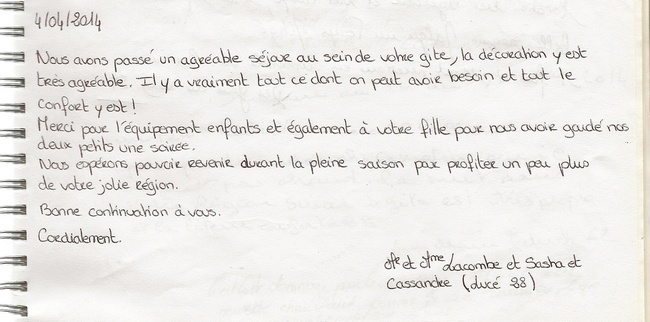 4/04/2014
Nous avons passé un agréable séjour au sein de votre gite, la décoration y est
très agréable. Il y a vraiment tout ce dont on peut avoir besoin et tout le
confort y est !
Merci pour l'équipement enfants et également à votre fille pour nous avoir gardé nos
deux petits une soirée.
Nous espérons pouvoir revenir durant la pleine saison pour profiter un peu plus
de votre jolie région.
Bonne continuation à vous.
Cordialement.
Mr et Mme Lacombe et Sasha et
Cassandre (